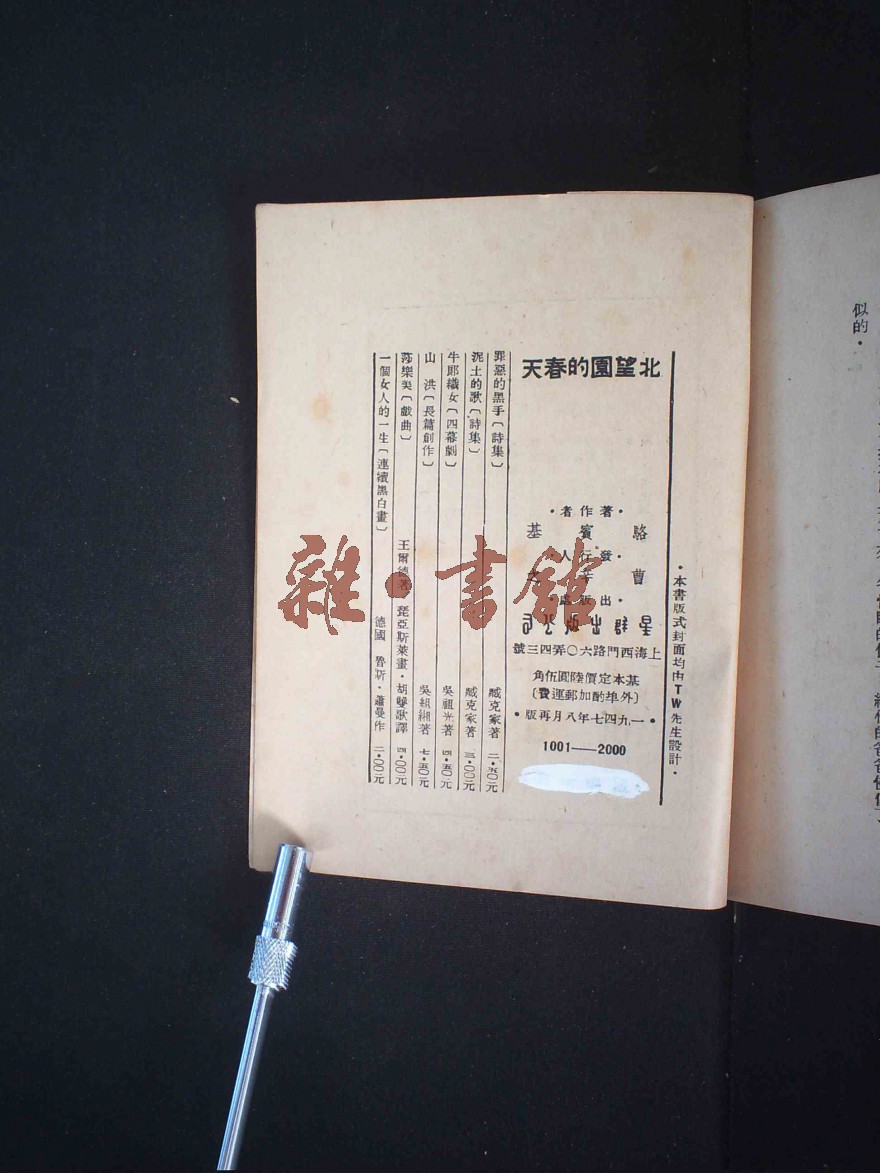 似的·
·本書版式封面均由TW先生設計·
北望園的春天
·著作者·
駱賓基
·發行人·
曹辛之
·出版處·
星群出版公司
上海西門路六〇弄四三號
基本定價陸圓伍角
〔外埠酌加郵運費〕
·一九四七年八月再版·
1001—2000
罪惡的黑手〔詩集〕 臧克家著 二·五〇元
泥土的歌〔詩集〕 臧克家著 三·〇〇元
牛郎織女〔四幕劇〕 吳祖光著 四·五〇元
山洪〔長篇創作〕 吳組緗著 七·五〇元
莎樂美〔戲曲〕 王爾德著 琵亞斯萊畫·胡雙歌譯 四·〇〇元
一個女人的一生〔連續黑白畫〕 德國 魯斯·蕭曼作 二·〇〇元
雜·書館